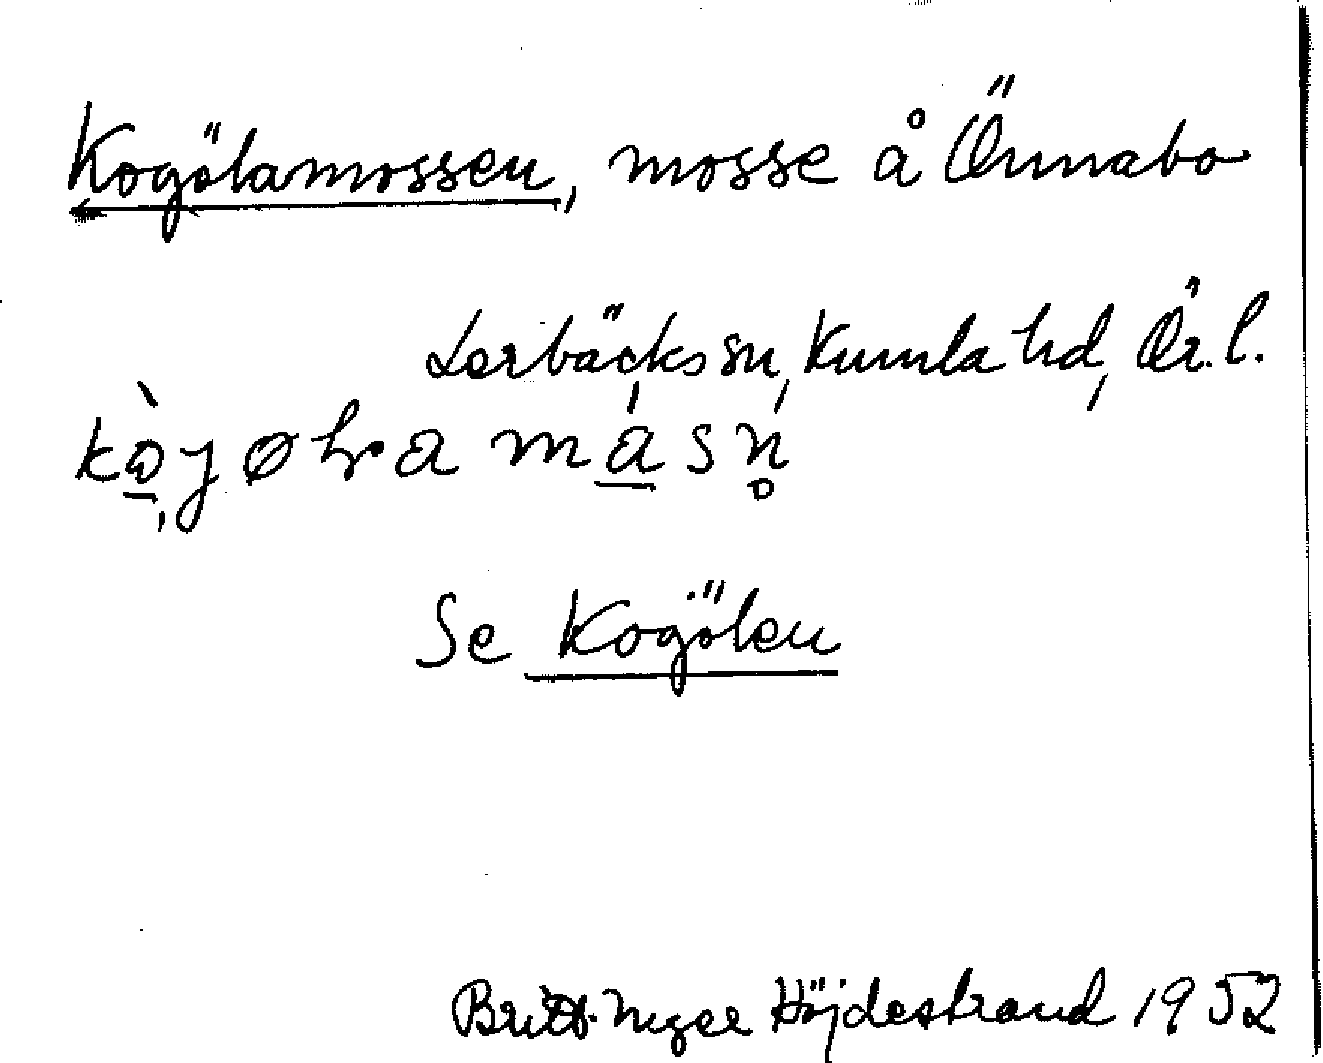 Kogölamossen, mosse å Önnabo
Lerbäcks sn, Kumla hd, Ör. l.
Se Kogölen
Britt Inger Höjdestrand 1952